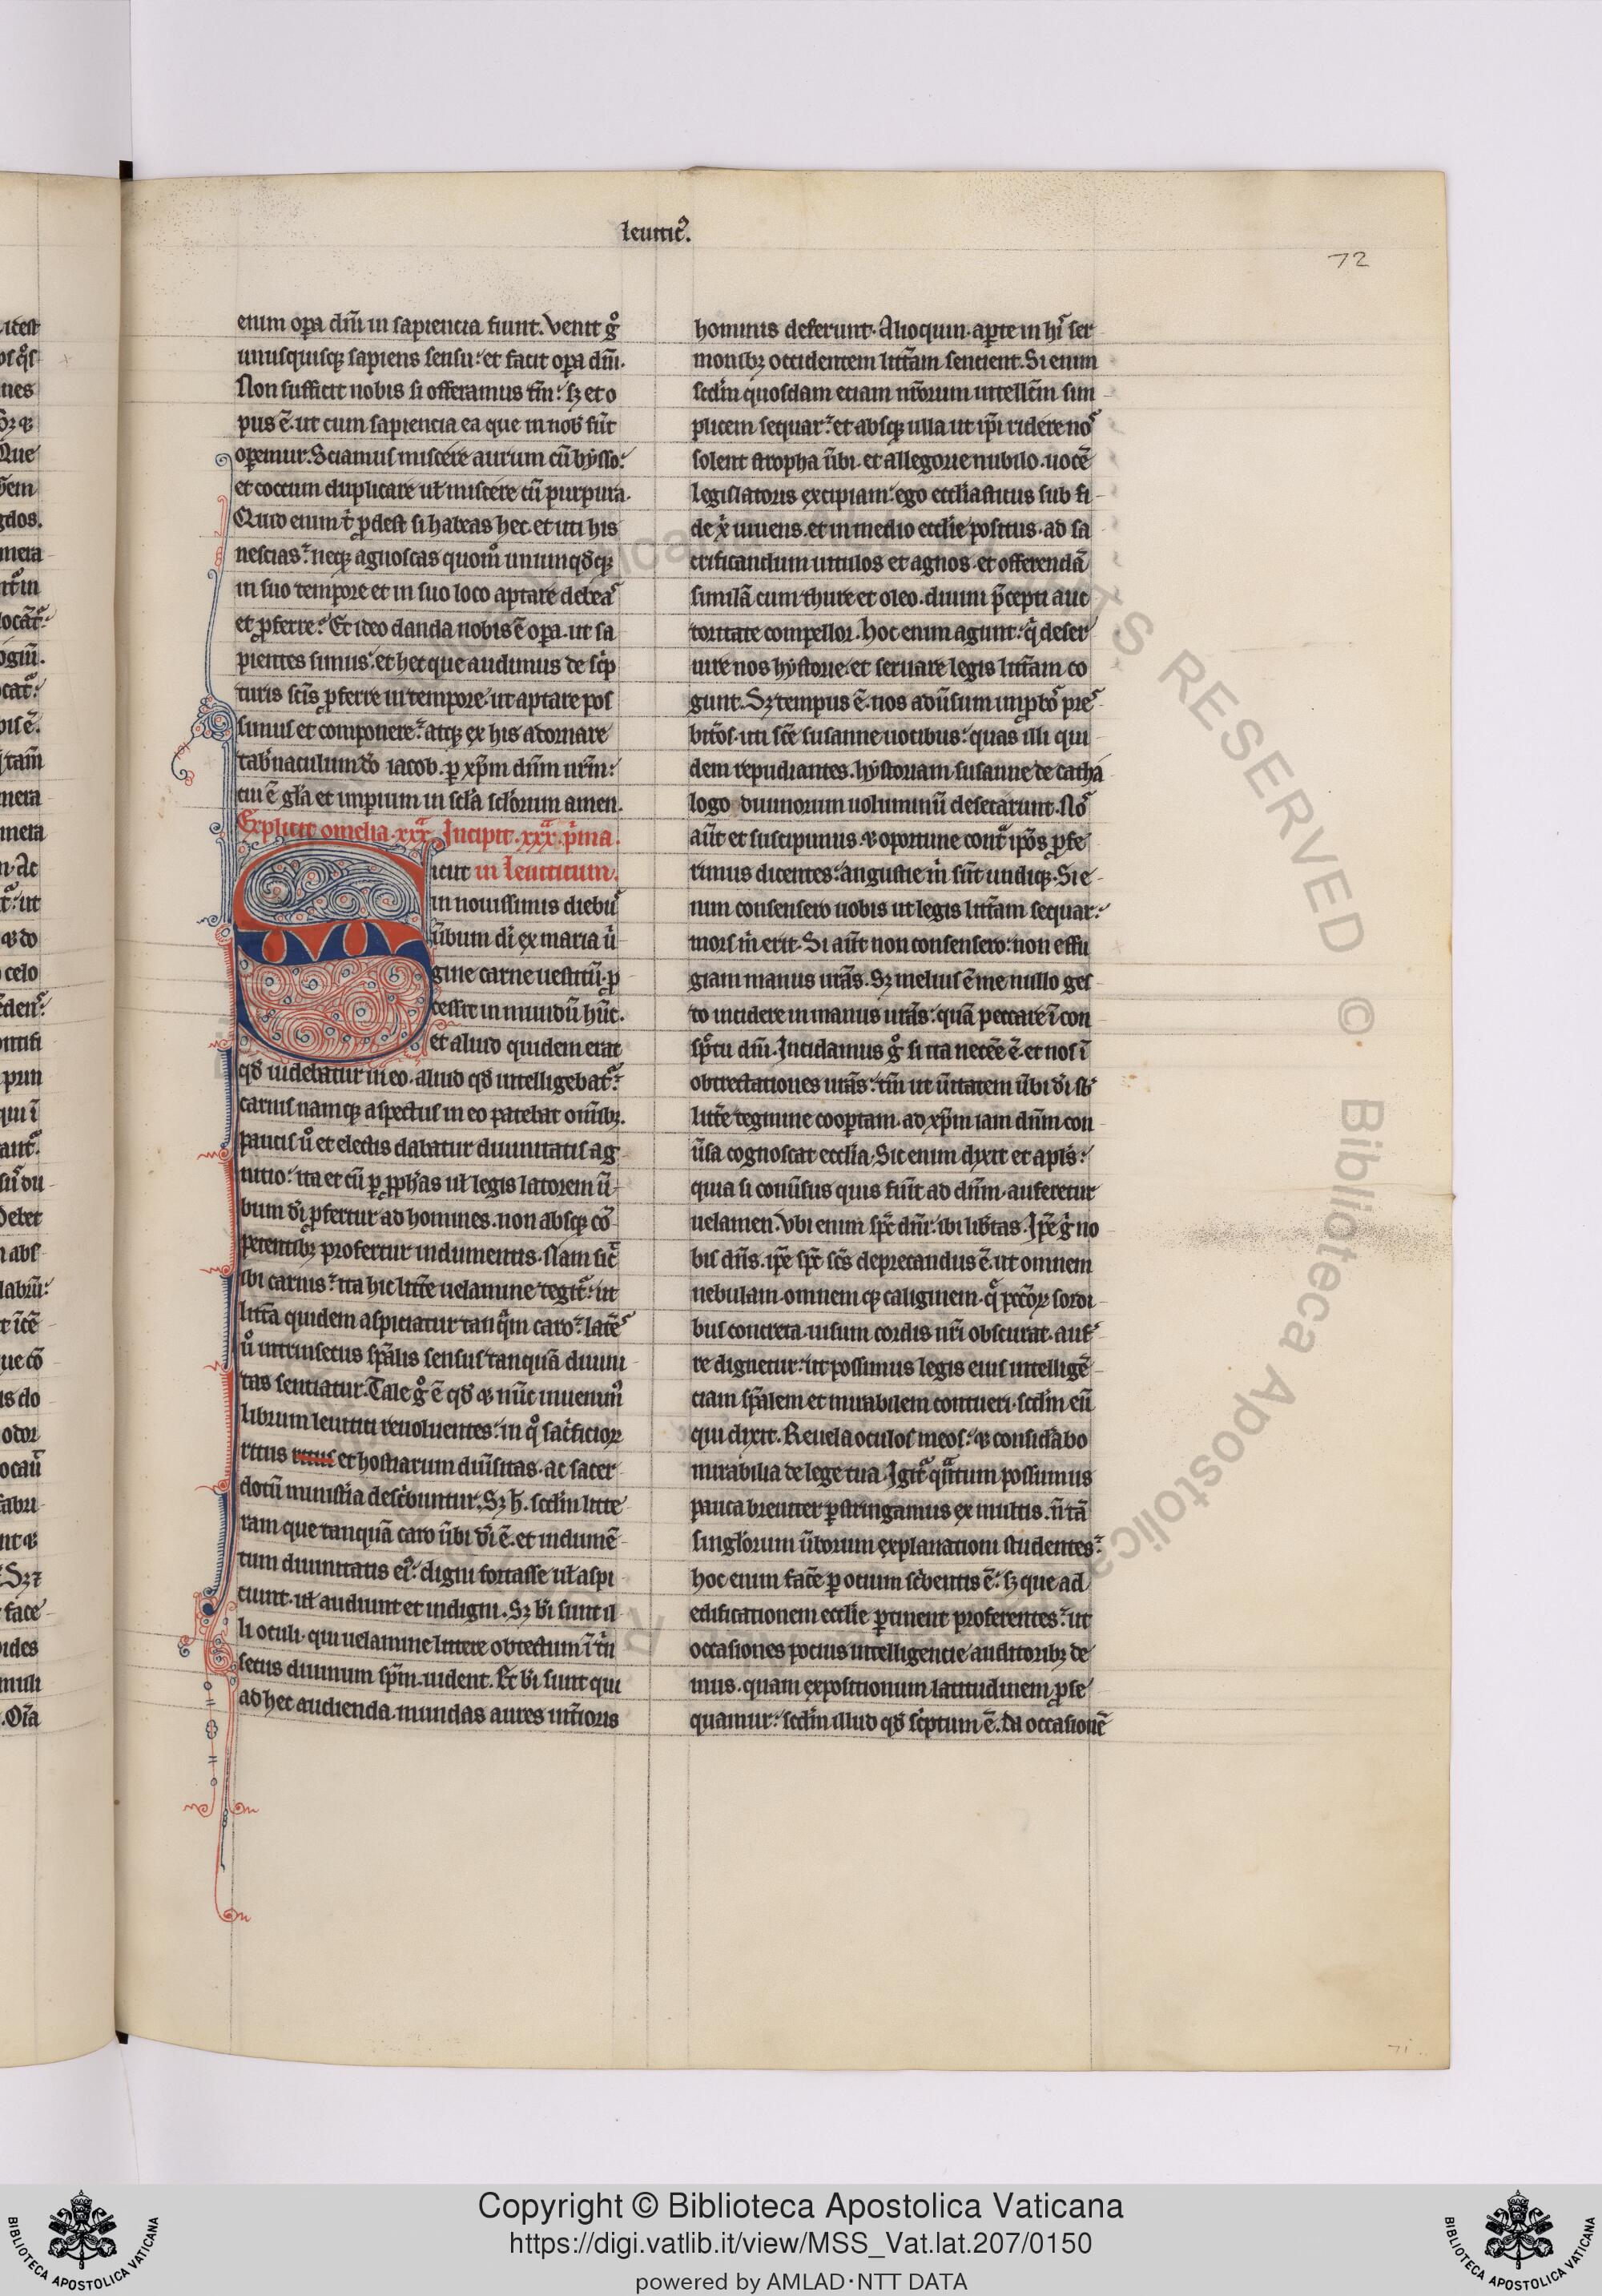 leuitic᷒.
72
enim oꝑa dñi in sapiencia fiunt. Venit gͦ
unusquisqꝫ sapiens sensu: et facit oꝑa dñi.
Non sufficit nobis si offeramus tm̃: sꝫ et o
pus ẽ. ut cum sapiencia ea que in nob̾ sũt
oꝑemur. Sciamus miscere aurum cũ bysso:
et coccum duplicare ul̾ miscere cũ purpura.
Quid enim t̾ ꝓdest si habeas hec. et uti his
nescias: neqꝫ agnoscas quom̊ unumqđqꝫ
in suo tempore et in suo loco aptare debeas
et ꝓferre: Et ideo danda nobis ẽ oꝑa. ut sa
pientes simus: et hec que audimus de sc̾p
turis scĩs ꝓferre in tempore. ut aptare pos
simus et componere: atqꝫ ex his adornare
tab̾naculum đo iacob. ꝑ xp̃m dñm nr̃m:
cui ẽ gl̃a et imꝑium in scl̃a scl̃orum amen.
Explicit omelia .xxxᵃ. Incipit .xxxᵃ. p̾ma.
icut in leuiticum.
in nouissimis diebus
ũbum dĩ ex maria ũ
gine carne uestitũ. ꝓ
cessit in mundũ hũc.
et aliud quidem erat
qđ uidebatur in eo. aliud qđ intelligebat᷑:
carnis namqꝫ aspectus in eo patebat om̃ibꝫ.
paucis ů et electis dabatur diuinitatis ag
nitio: ita et cũ ꝑ ꝓph̾as ul̾ legis latorem ũ
bum dĩ ꝓfertur ad homines. non absqꝫ cõ
petentibꝫ profertur indumentis. Nam sic̃
ibi carnis: ita hic litt̃e uelamine tegit᷑: ut
litt̃a quidem aspiciatur tanq̃m caro: latẽs
ů intrinsecus sp̃alis sensus tanquã diuini
tas sentiatur. Tale gͦ ẽ qđ ⁊ nũc inuenim᷒
librum leuitici reuoluentes: in qͦ sac̾ficioꝝ
ritus ritus et hostiarum diũsitas. ac sacer
dotũ minist̾ia desc̾buntur. Sꝫ ħ. scđm litte
ram que tanquã caro ũbi dĩ ẽ. et indumẽ
tum diuinitatis ei᷒: digni fortasse ul̾ aspi
ciunt. ul̾ audiunt et indigni. Sꝫ b̾i sunt il
li oculi. qui uelamine littere obtectum ĩt̾n
secus diuinum sp̃m. uident. Et b̾i sunt qui
ad hec audienda. mundas aures int̾ioris
hominis deferunt. Alioquin. aꝑte in hi̾s ser
monibꝫ occidentem litt̃am sencient. Si enim
scđm quosdam eciam nr̃orum intellc̃m sim
plicem sequar: et absqꝫ ulla ut ip̃i ridere nos
solent stropha ũbi. et allegorie nubilo. uocẽ
legislatoris excipiam: ego eccl̃iasticus sub fi
de x̾ uiuens. et in medio eccl̃ie positus. ad sa
crificandum uitulos et agnos. et offerendã
similã cum thure et oleo. diuini p̃cepti auc
toritate compellor. Hoc enim agunt: q̾ deser
uire nos hystorie. et seruare legis litt̃am co
gunt. Sꝫ tempus ẽ. nos adũsum imꝓbos pres
bit̃os. uti sc̃e susanne uocibus: quas illi qui
dem repudiantes. hystoriam. susanne de catha
logo diuinorum uoluminũ desecarunt. Nos
aũt et suscipimus. ⁊ oportune contᵃ ip̃os ꝓfe
rimus dicentes: angustie m̾ sũt undiqꝫ. Si e
nim consensero uobis ut legis litt̃am sequar:
mors m̾ erit. Si aũt non consensero: non effu
giam manus ur̃as. Sꝫ melius ẽ me nullo ges
to incidere in manus ur̃as: quã peccare ĩ con
sp̃ctu dñi. Incidamus gͦ si ita nec̃e ẽ. et nos ĩ
obtrectationes ur̃as: tm̃ ut ũitatem ũbi dĩ sb̾
litt̃e tegmine cooꝑtam. ad xp̃m iam dñm con
ũsa cognoscat eccl̃ia. Sic enim dixit et apl̃s:
quia si conũsus quis fũit ad dñm. auferetur
uelamen. Vbi enim sp̃c dñi: ibi lib̾tas. Ip̃e g̾ no
bis dñs. ip̃e sp̃c sc̃s deprecandus ẽ. ut omnem
nebulam. omnem qꝫ caliginem. qͣ pcc̃oꝝ sordi
bus concreta. uisum cordis nr̃i obscurat. aufer
re dignetur: ut possimus legis eius intelligẽ
ciam sp̃alem et mirabilem contueri. scđm eũ
qui dixit. Reuela oculos meos: ⁊ consid̾abo
mirabilia de lege tua. Igit᷑ qͣntum possumus
pauca breuiter ꝑstringamus ex multis. ñ tã
singl̃orum ũborum explanationi studentes:
hoc enim fac̃e ꝑ otium sc̾bentis ẽ: sꝫ que ad
edificationem eccl̃ie ꝑtinent proferentes: ut
occasiones pocius intelligencie auditoribꝫ de
mus. quam expositionum latitudinem ꝓse
quamur: scđm illud qđ sc̾ptum ẽ. da occasionẽ
Copyright © Biblioteca Apostolica Vaticana
https://digi.vatlib.it/view/MSS_Vat.lat.207/0150
powered by AMLAD·NTT DATA
BIBLIOTECA APOSTOLICA VATICANA
BIBLIOTECA APOSTOLICA VATICANA